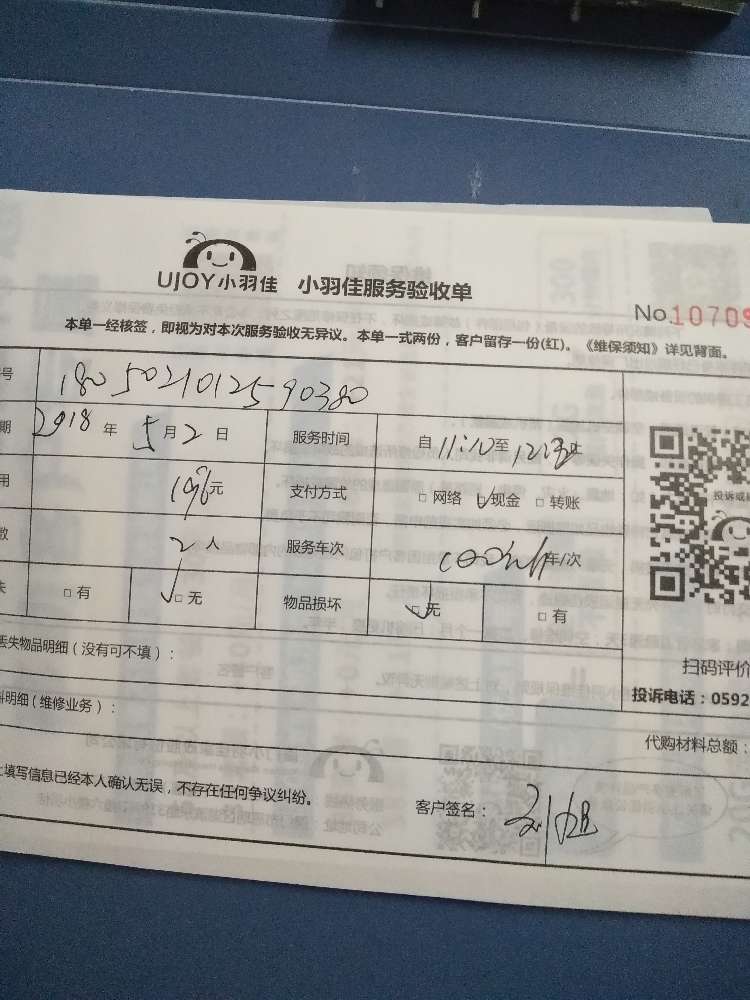 UJOY小羽佳 小羽佳服务验收单
No.10709
本单一经核签，即视为对本次服务验收无异议。本单一式两份，客户留存一份(红)。《维保须知》详见背面。
号 1805021012590380
期 2018 年 5 月 2 日 服务时间 自 11:10 至 止
用 元 支付方式 □ 网络 □ 现金 □ 转账
数 2 人 服务车次 车/次
失 □ 有 □ 无 物品损坏 □ 无 □ 有
投诉或
扫码评价
丢失物品明细（没有可不填）：
投诉电话：0592
料明细（维修业务）：
代购材料总额：
上填写信息已经本人确认无误，不存在任何争议纠纷。 客户签名： 刘姐